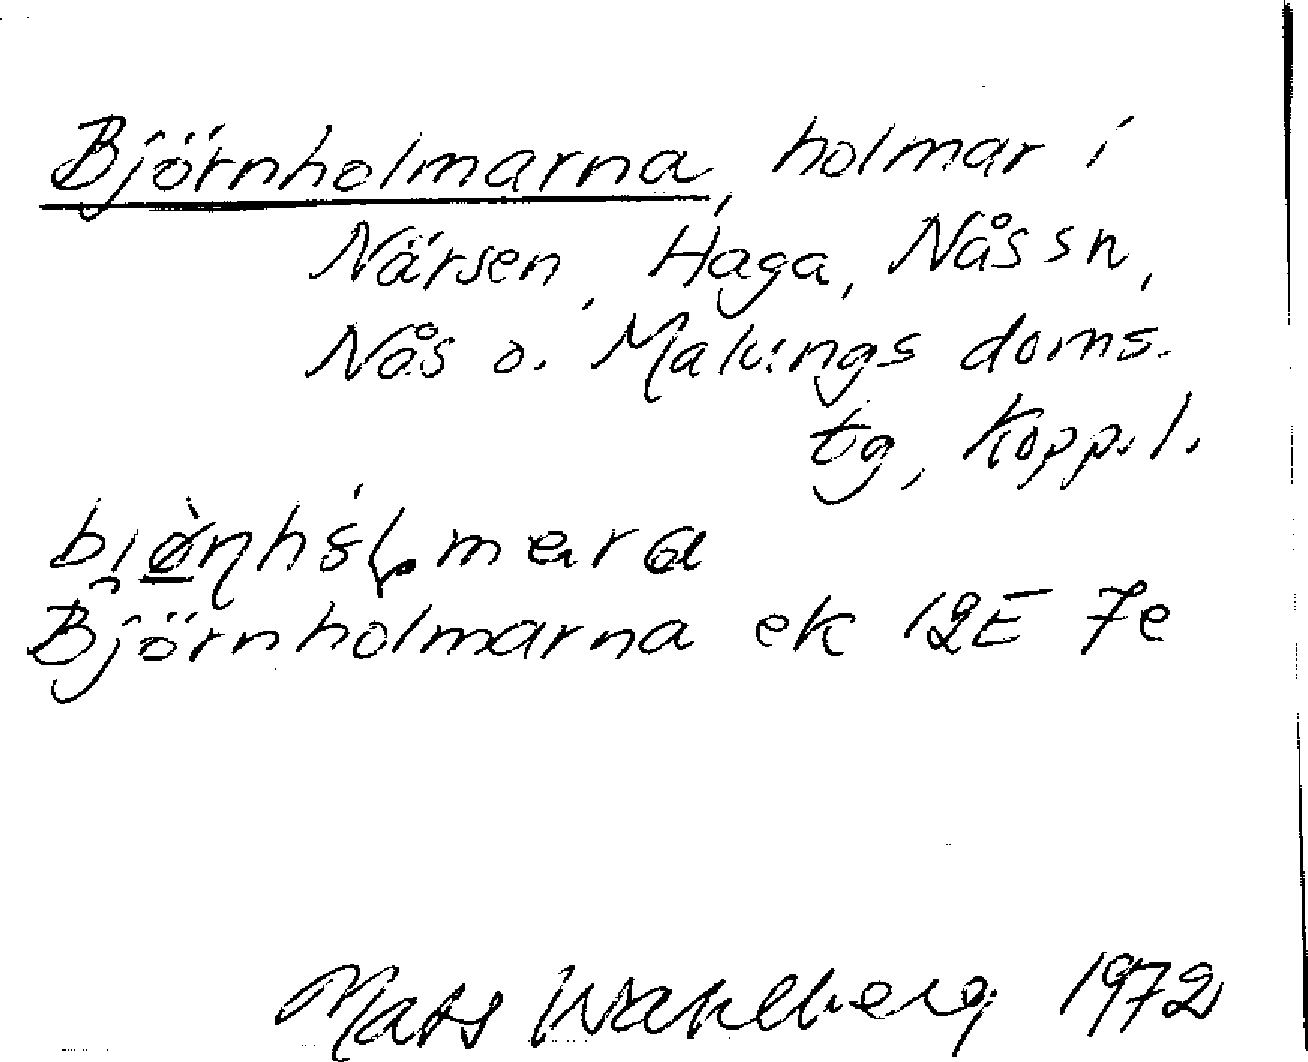 Björnholmarna, holmar i
Närsen, Haga, Nås sn,
Nås o. Malungs doms.
tg, Kopp.l.
Björnholmarna ek 12E 7e
Mats Wahlberg 1972